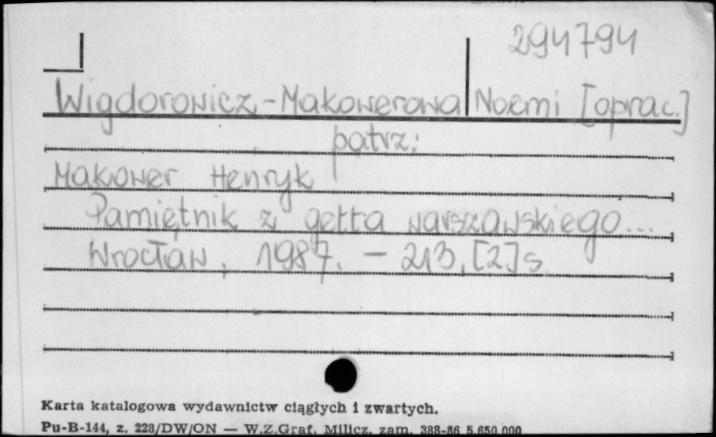 294794
Wigdorowicz-Makowerowa Noemi [oprac.]
patrz:
Makower Henryk
Pamiętnik z getta warszawskiego...
Wrocław, 1987. - 213, [2] s.
Karta katalogowa wydawnictw ciągłych i zwartych.
Pu-B-144, z. 228/DW/ON — W.Z.Graf. Milicz, zam. 388-86 5.650.000